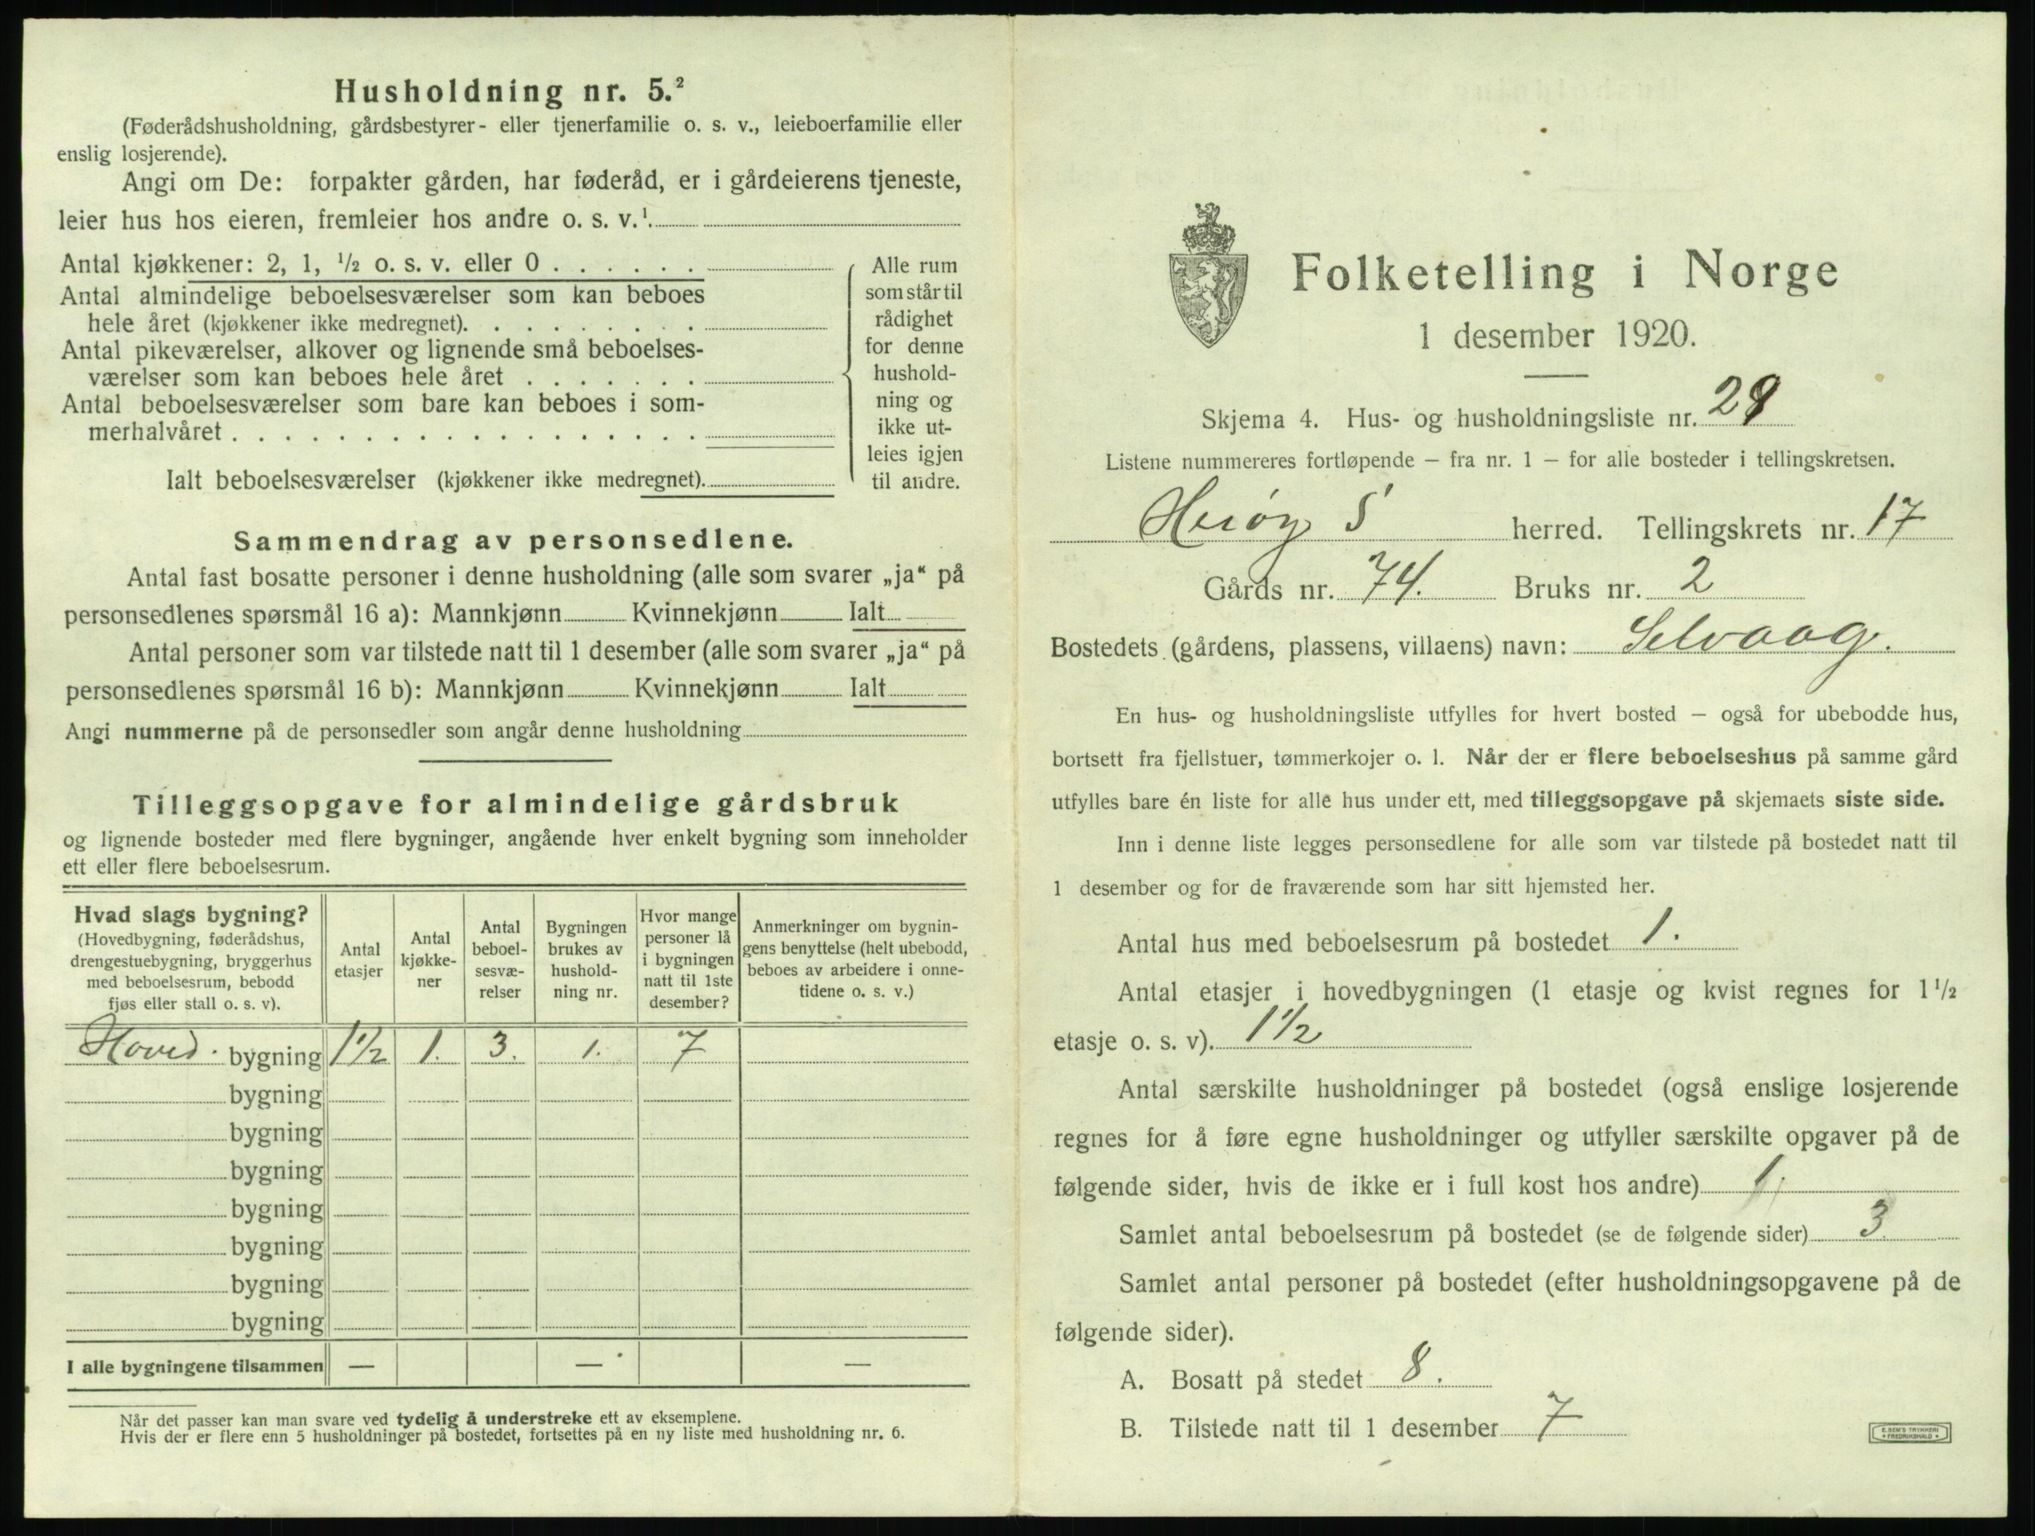 Husholdning nr. 5.²
(Føderådshusholdning, gårdsbestyrer- eller tjenerfamilie o. s. v., leieboerfamilie eller
enslig losjerende).
Angi om De: forpakter gården, har føderåd, er i gårdeierens tjeneste,
leier hus hos eieren, fremleier hos andre o. s. v.¹
Antal kjøkkener: 2, 1, ½ o. s. v. eller 0 . . . . . .
Antal almindelige beboelsesværelser som kan beboes
hele året (kjøkkener ikke medregnet). . . . . . . . .
Antal pikeværelser, alkover og lignende små beboelses-
værelser som kan beboes hele året . . . . . . .
Antal beboelsesværelser som bare kan beboes i som-
merhalvåret . . . . . . . . . . . . . . . . . .
Ialt beboelsesværelser (kjøkkener ikke medregnet).
Alle rum
som står til
rådighet
for denne
hushold-
ning og
ikke ut-
leies igjen
til andre.
Sammendrag av personsedlene.
Antal fast bosatte personer i denne husholdning (alle som svarer „ja“ på
personsedlenes spørsmål 16 a): Mannkjønn Kvinnekjønn Ialt
Antal personer som var tilstede natt til 1 desember (alle som svarer „ja“ på
personsedlenes spørsmål 16 b): Mannkjønn Kvinnekjønn Ialt
Angi nummerne på de personsedler som angår denne husholdning
Tilleggsopgave for almindelige gårdsbruk
og lignende bosteder med flere bygninger, angående hver enkelt bygning som inneholder
ett eller flere beboelsesrum.
Hvad slags bygning?
(Hovedbygning, føderådshus,
drengestuebygning, bryggerhus
med beboelsesrum, bebodd
fjøs eller stall o. s. v).
Antal
etasjer
Antal
kjøkke-
ner
Antal
beboel-
sesvæ-
relser
Bygningen
brukes av
hushold-
ning nr.
Hvor mange
personer lå
i bygningen
natt til 1ste
desember?
Anmerkninger om bygnin-
gens benyttelse (helt ubebodd,
beboes av arbeidere i onne-
tidene o. s. v.)
Hoved. bygning 1½ 1. 3. 1. 7
bygning
bygning
bygning
bygning
bygning
bygning
bygning
I alle bygningene tilsammen — — —
Når det passer kan man svare ved tydelig å understreke ett av eksemplene.
Hvis der er flere enn 5 husholdninger på bostedet, fortsettes på en ny liste med husholdning nr. 6.
Folketelling i Norge
1 desember 1920.
Skjema 4. Hus- og husholdningsliste nr. 29
Listene nummereres fortløpende — fra nr. 1 — for alle bosteder i tellingskretsen.
Herøy S herred. Tellingskrets nr. 17
Gårds nr. 74. Bruks nr. 2
Bostedets (gårdens, plassens, villaens) navn: Selvaag.
En hus- og husholdningsliste utfylles for hvert bosted — også for ubebodde hus,
bortsett fra fjellstuer, tømmerkojer o. l. Når der er flere beboelseshus på samme gård
utfylles bare én liste for alle hus under ett, med tilleggsopgave på skjemaets siste side.
Inn i denne liste legges personsedlene for alle som var tilstede på bostedet natt til
1 desember og for de fraværende som har sitt hjemsted her.
Antal hus med beboelsesrum på bostedet 1.
Antal etasjer i hovedbygningen (1 etasje og kvist regnes for 1½
etasje o. s. v). 1½
Antal særskilte husholdninger på bostedet (også enslige losjerende
regnes for å føre egne husholdninger og utfyller særskilte opgaver på de
følgende sider, hvis de ikke er i full kost hos andre) 1.
Samlet antal beboelsesrum på bostedet (se de følgende sider) 3.
Samlet antal personer på bostedet (efter husholdningsopgavene på de
følgende sider).
A. Bosatt på stedet 8.
B. Tilstede natt til 1 desember 7
E. SEM'S TRYKKERI
FREDRIKSHALD